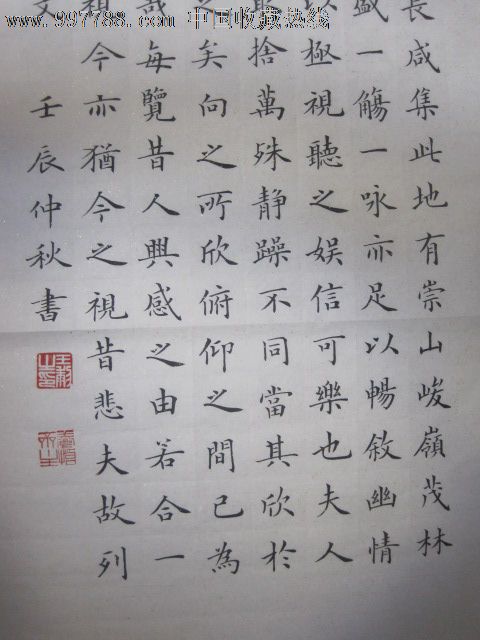 www.997788.com 中国收藏热线
長咸集此地有崇山峻嶺茂林
盛一觴一咏亦足以暢敘幽情
以極視聽之娱信可樂也夫人
捨萬殊静躁不同當其欣於
之矣向之所欣俯仰之間已為
哉每覽昔人興感之由若合一
視今亦猶今之視昔悲夫故列
文 壬辰仲秋書